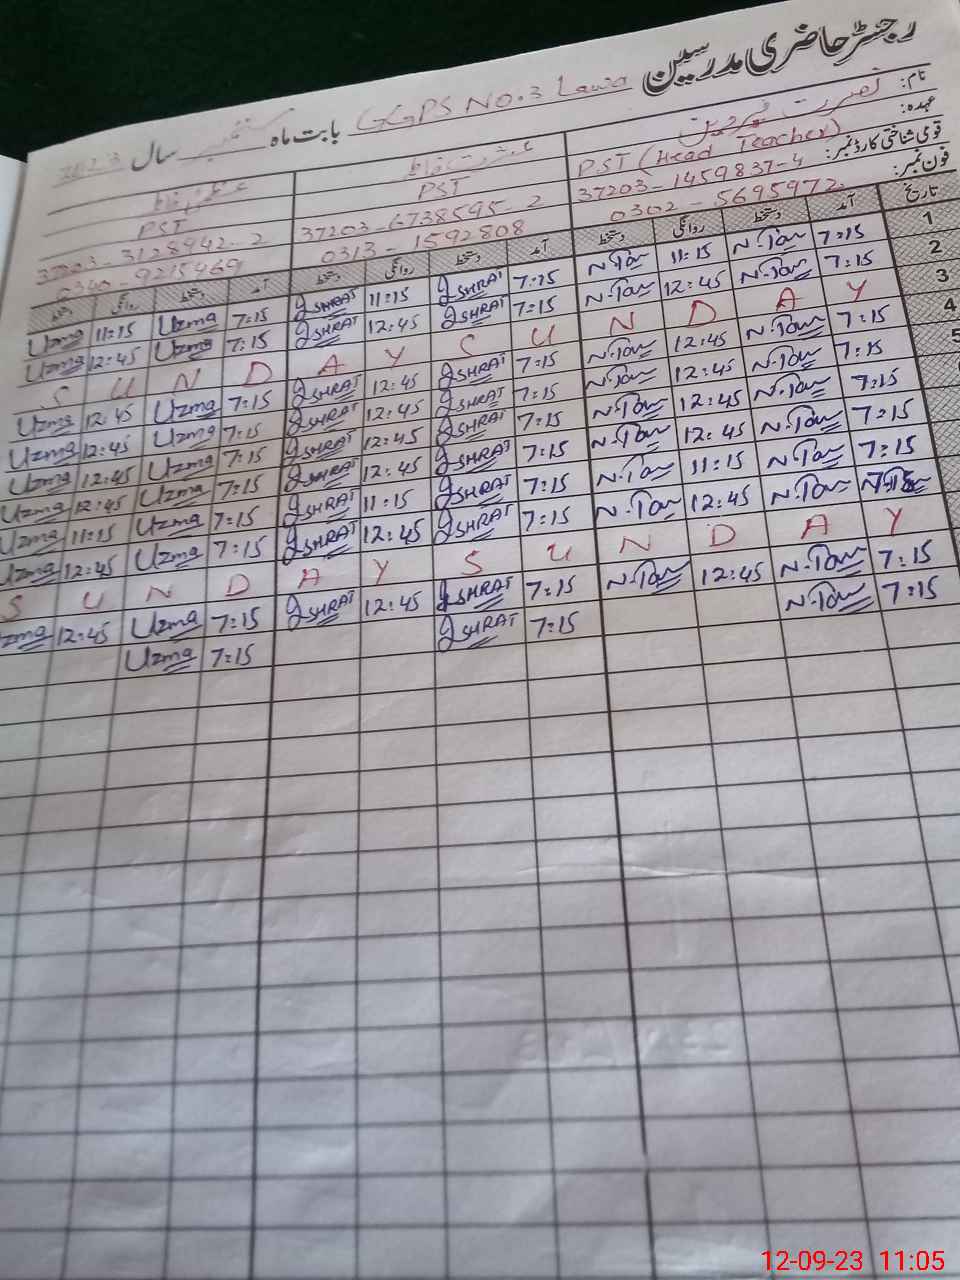 رجسٹر حاضری مدرسین GGPS No.3 Lawa بابت ماہ ستمبر سال 2023
نام: نصرت شہرین عشرت فاطمہ عظمیٰ فاطمہ
عہدہ: PST (Head Teacher) PST PST
قومی شناختی کارڈ نمبر: 37203-1459837-4 37203-6738595-2 37203-3128942-2
فون نمبر: 0302-5695972 0313-1592808 0340-9215469
تاریخ آمد دستخط روانگی دستخط آمد دستخط روانگی دستخط آمد دستخط روانگی دستخط
1 7:15 11:15 7:15 ISHRAT 11:15 ISHRAT 7:15 Uzma 11:15 Uzma
2 7:15 12:45 7:15 ISHRAT 12:45 ISHRAT 7:15 Uzma 12:45 Uzma
3 S U N D A Y S U N D A Y
4 7:15 12:45 7:15 ISHRAT 12:45 ISHRAT 7:15 Uzma 12:45 Uzma
5 7:15 12:45 7:15 ISHRAT 12:45 ISHRAT 7:15 Uzma 12:45 Uzma
7:15 12:45 7:15 ISHRAT 12:45 ISHRAT 7:15 Uzma 12:45 Uzma
7:15 12:45 7:15 ISHRAT 12:45 ISHRAT 7:15 Uzma 12:45 Uzma
7:15 11:15 7:15 ISHRAT 11:15 ISHRAT 7:15 Uzma 11:15 Uzma
7:15 12:45 7:15 ISHRAT 12:45 ISHRAT 7:15 Uzma 12:45 Uzma
S U N D A Y S U N D A Y
7:15 12:45 7:15 ISHRAT 12:45 ISHRAT 7:15 Uzma 12:45 Uzma
7:15 7:15 ISHRAT 7:15 Uzma
12-09-23 11:05